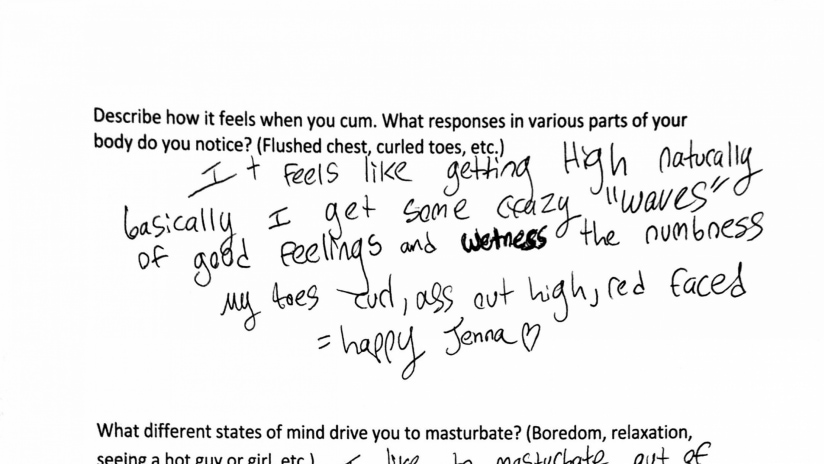 Describe how it feels when you cum. What responses in various parts of your
body do you notice? (Flushed chest, curled toes, etc.)
It feels like getting High naturally
basically I get some crazy "waves"
of good feelings and wetness the numbness
My toes curl, ass out high, red faced
= happy Jenna ♡
What different states of mind drive you to masturbate? (Boredom, relaxation,
seeing a hot guy or girl, etc.) I like to masturbate out of